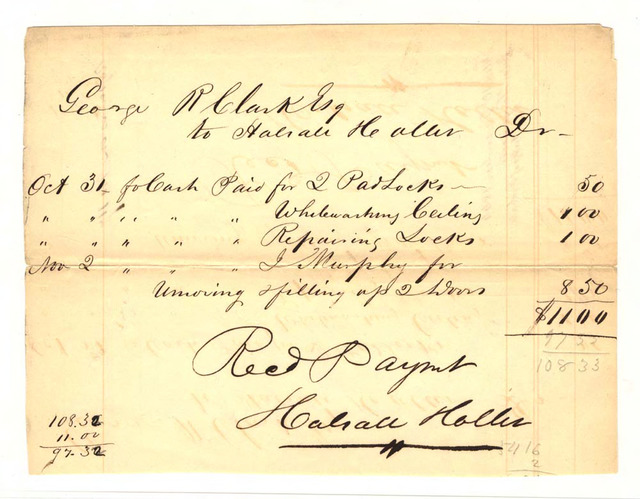 George R Clark Esq
to Halsall Holler Dr -
Oct 31 for Cash Paid for 2 Pad Locks - 50
" " " " " Whitewashing Ceiling 1 00
" " " " " Repairing Locks 1 00
Nov 2 " " " J Murphy for
filling up 2 Doors 8 50
$11 00
97 33
108 33
Recd Paymt
Halsall Holler
108.32
11.00
97.32
416
2